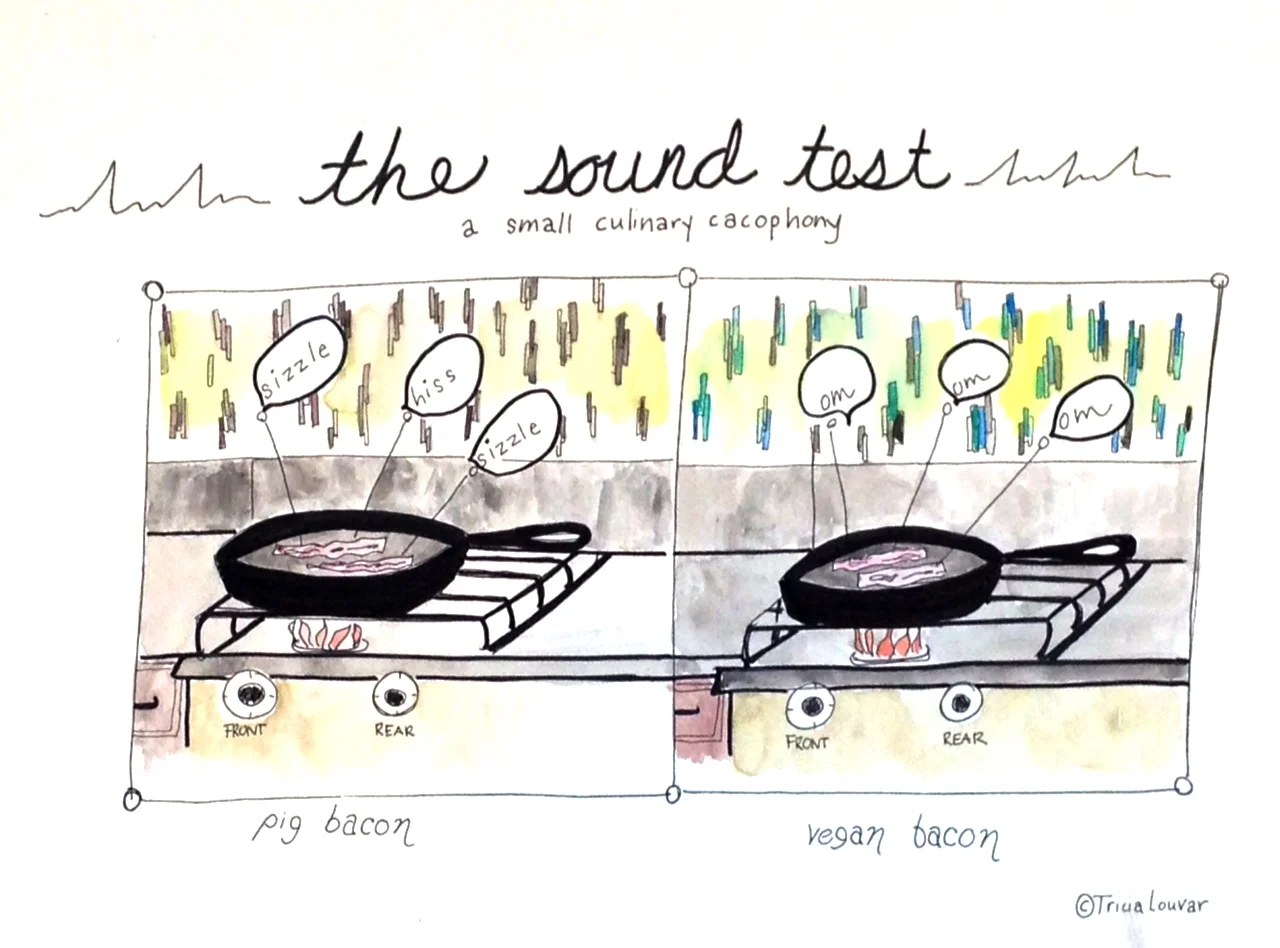 the sound test
a small culinary cacophony
sizzle
hiss
sizzle
om
om
om
FRONT
REAR
FRONT
REAR
pig bacon
vegan bacon
©Tricia Louvar